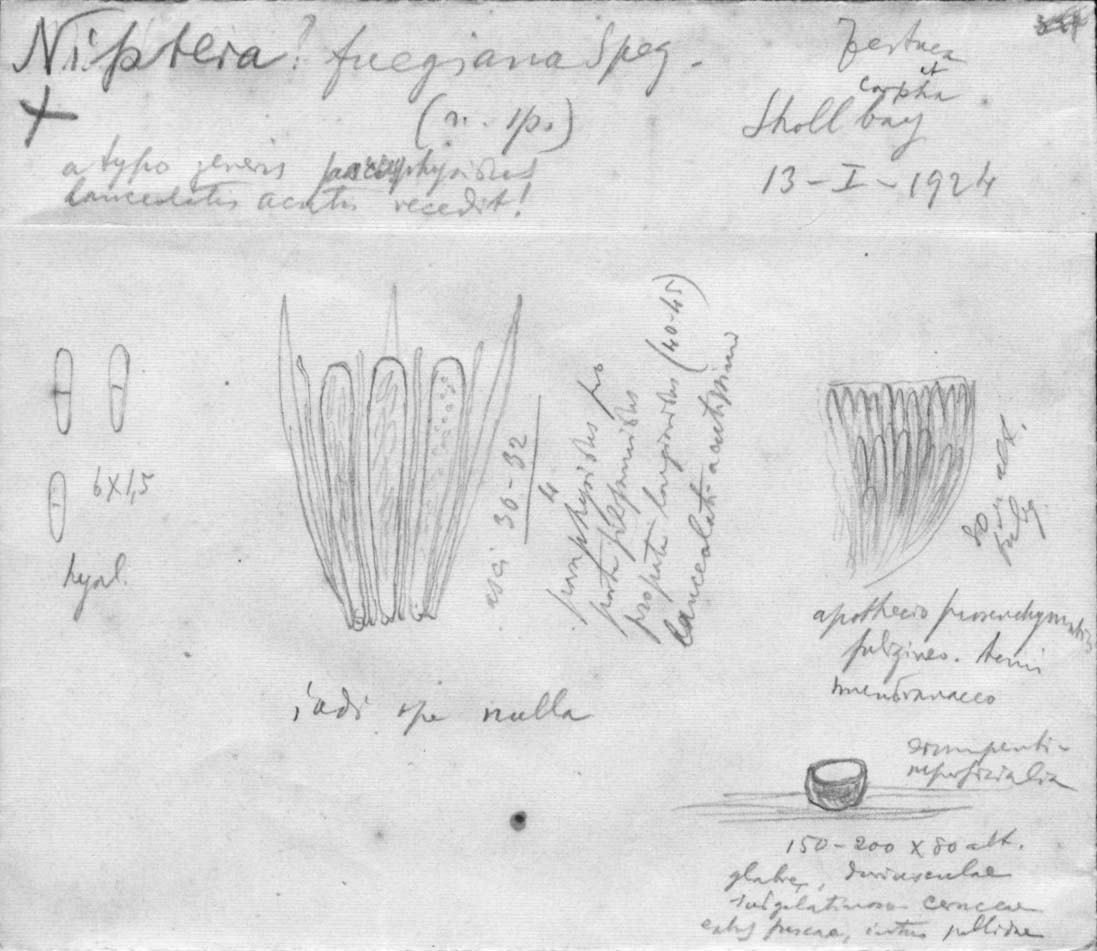 Niptera? fuegiana Speg.
(n. sp.)
a typo generis paraphysibus
lanceolatis acutis recedit!
et
Carpha
Sholl bay
13-I-1924
6×1,5
hyal.
asci 30-32
4
paraphysibus pro
parte filiformibus
pro parte longioribus (40-45)
lanceolati-acutissimis
jodi ope nulla
80 alt.
fulig.
apothecio prosenchymatico
fuligineo. tenui
membranaceo
erumpenti-
superficialia
150-200 × 80 alt.
glabra, duriusculae
subgelatinoso ceraceae
extus fuscae, intus pallidae